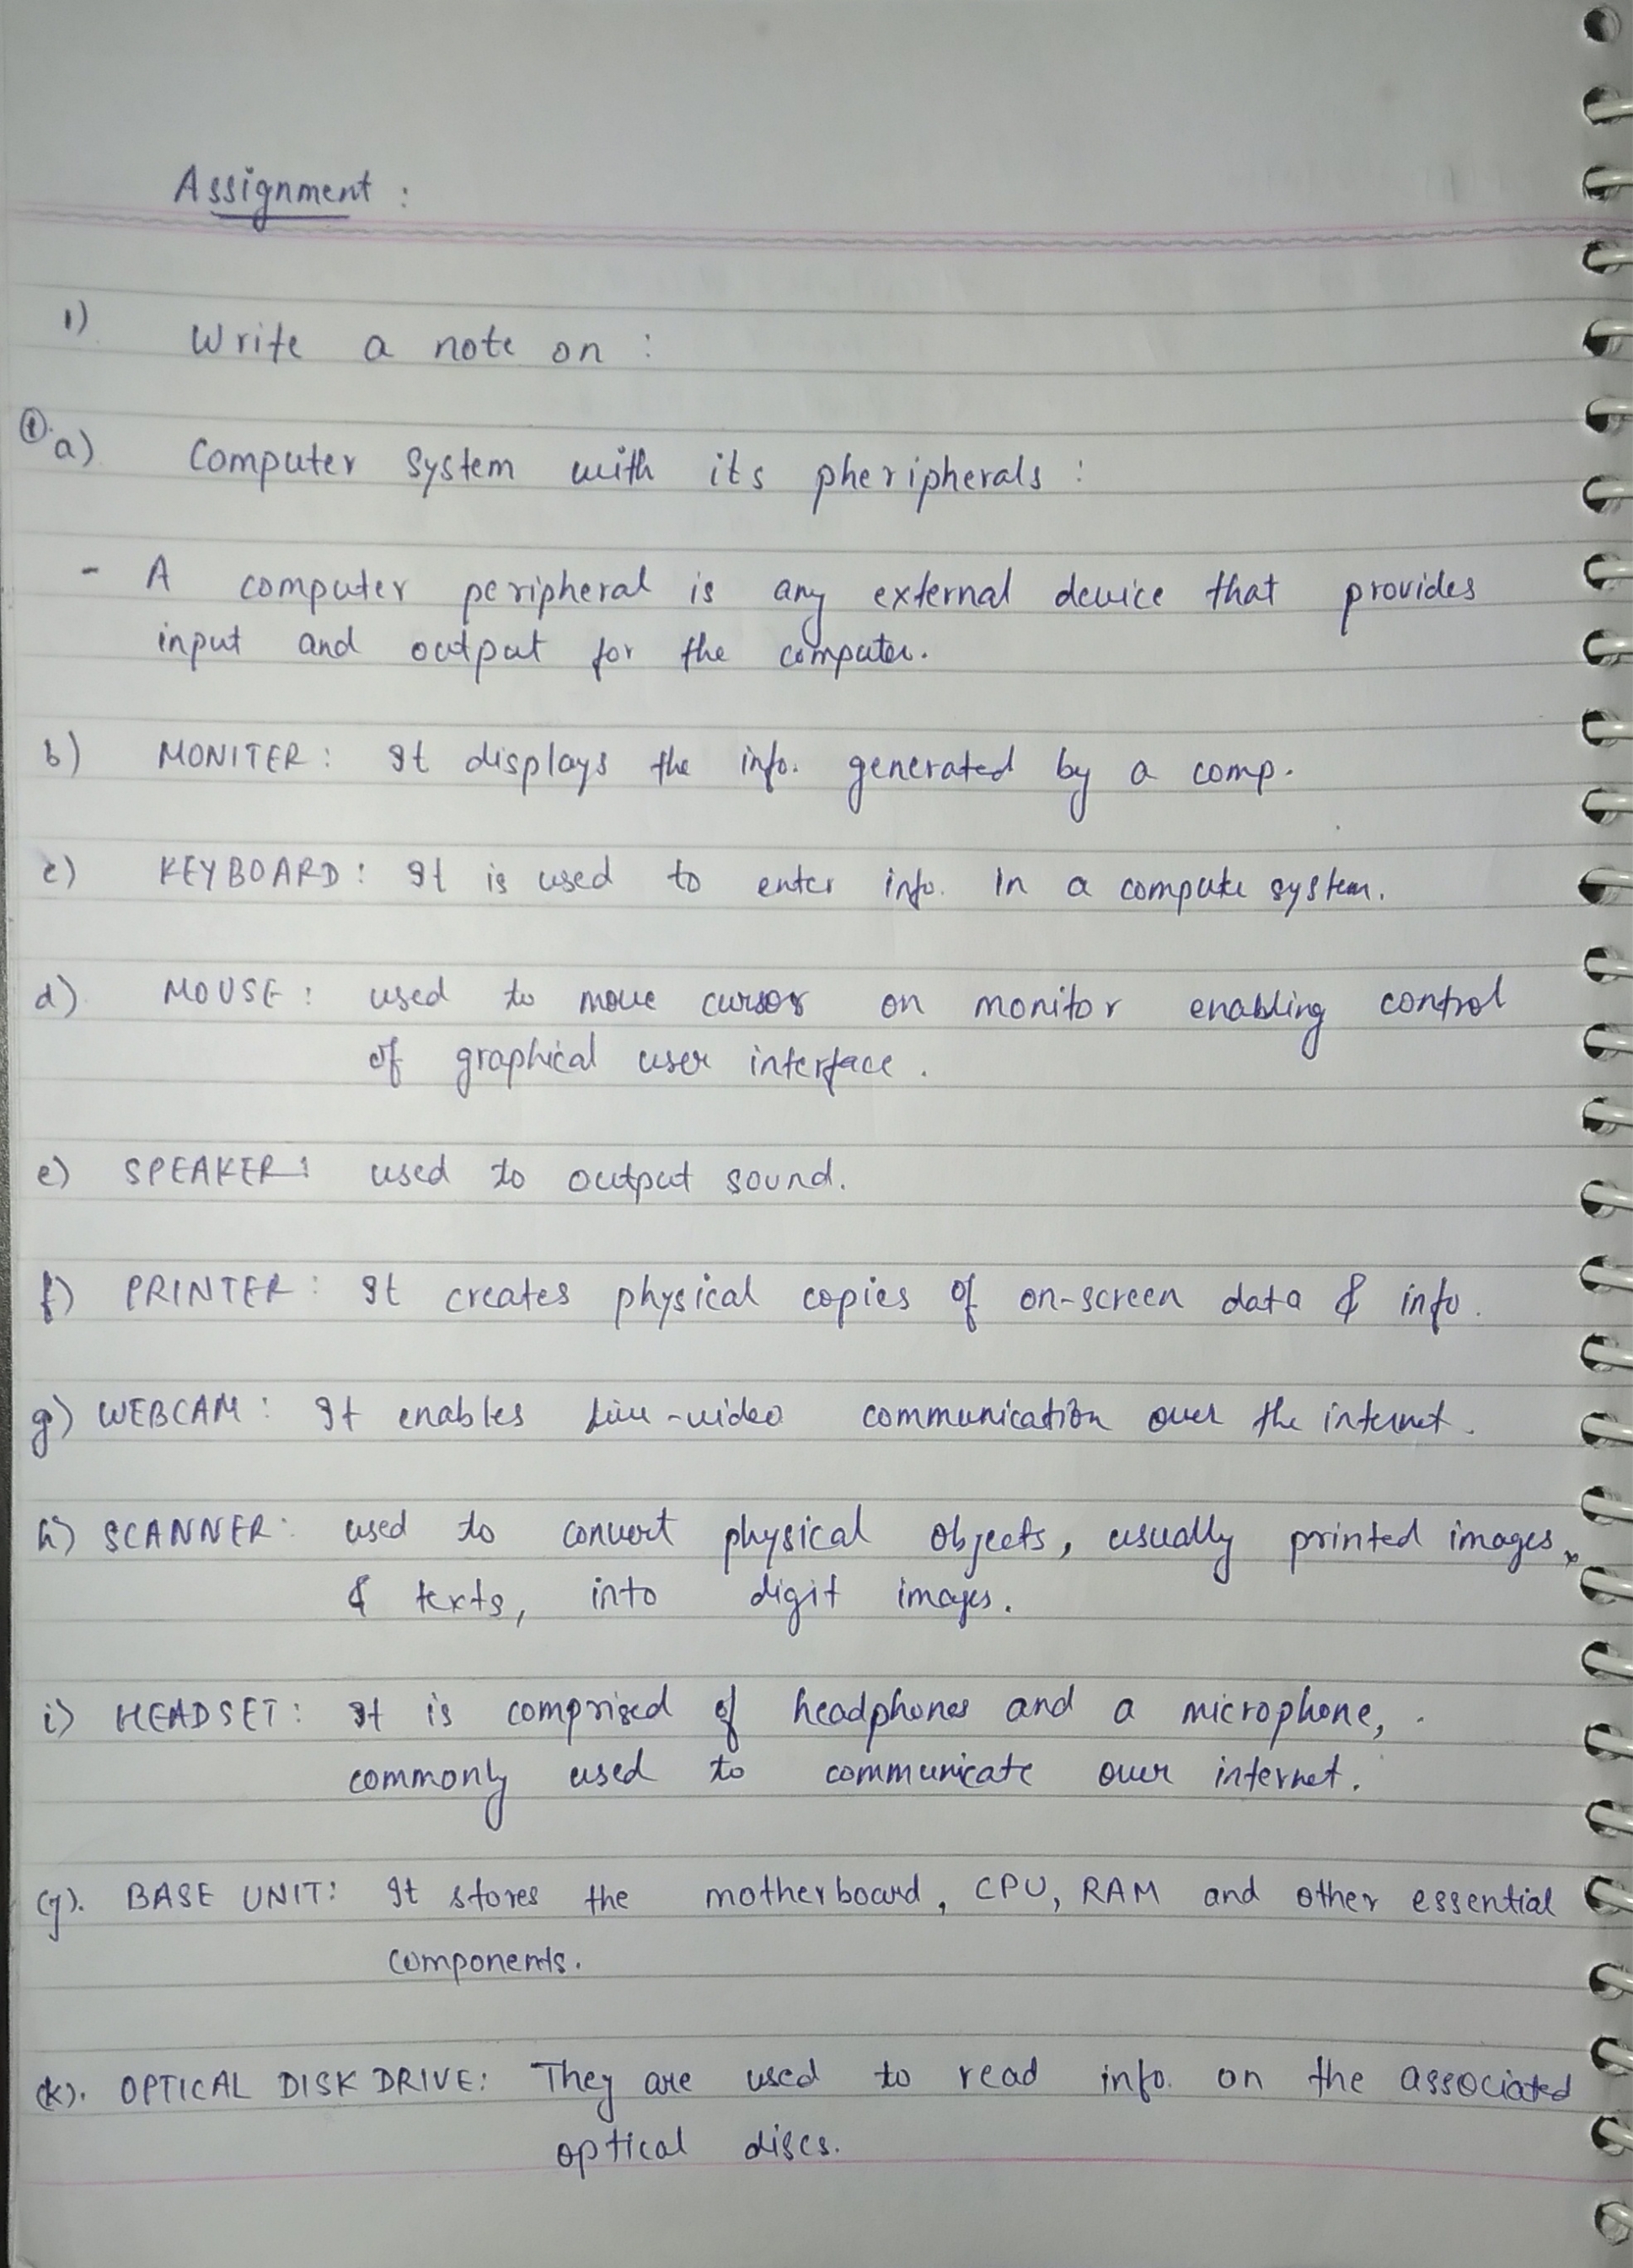 Assignment :
1) Write a note on :
① a) Computer System with its pheripherals :
- A computer peripheral is any external device that provides
input and output for the computer.
b) MONITER : It displays the info. generated by a comp.
c) KEYBOARD : It is used to enter info. in a compute system.
d) MOUSE : used to move cursor on monitor enabling control
of graphical user interface.
e) SPEAKER : used to output sound.
f) PRINTER : It creates physical copies of on-screen data & info.
g) WEBCAM : It enables Live-video communication over the internet.
h) SCANNER : used to convert physical objects, usually printed images,
& texts, into digit images.
i) HEADSET : It is comprised of headphones and a microphone,
commonly used to communicate over internet.
(j). BASE UNIT : It stores the motherboard, CPU, RAM and other essential
components.
(k). OPTICAL DISK DRIVE : They are used to read info. on the associated
optical discs.